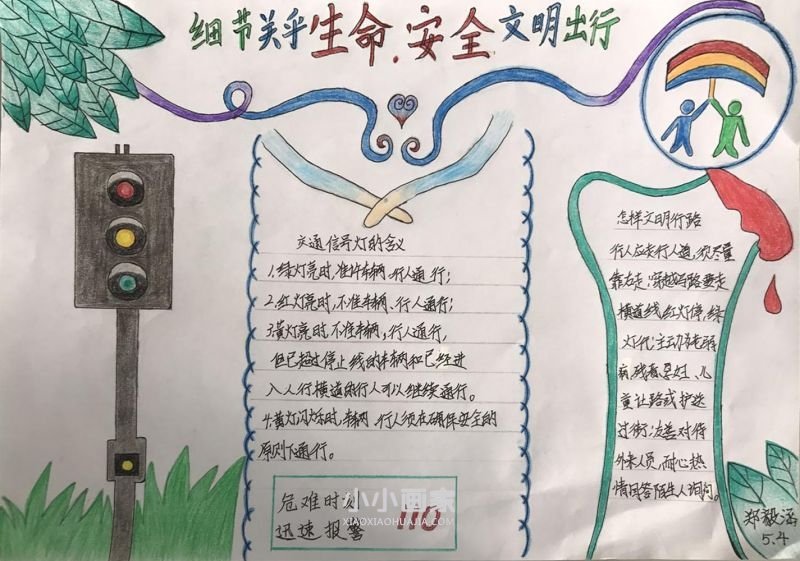 细节关乎生命.安全文明出行
交通信号灯的含义
1.绿灯亮时,准许车辆,行人通行;
2.红灯亮时,不准车辆、行人通行;
3.黄灯亮时,不准车辆,行人通行,
但已越过停止线的车辆和已经进
入人行横道的行人可以继续通行。
4.黄灯闪烁时,车辆、行人须在确保安全的
原则下通行。
危难时刻
迅速报警
110
小小画家
XIAOXIAOHUAJIA.COM
怎样文明行路
行人应走行人道,须尽量
靠右走;穿越马路要走
横道线,红灯停,绿
灯行;主动给老弱
病、残疾、孕妇、儿
童让路或护送
过街;友善对待
外来人员,耐心热
情回答陌生人询问。
郑毅涵
5.4